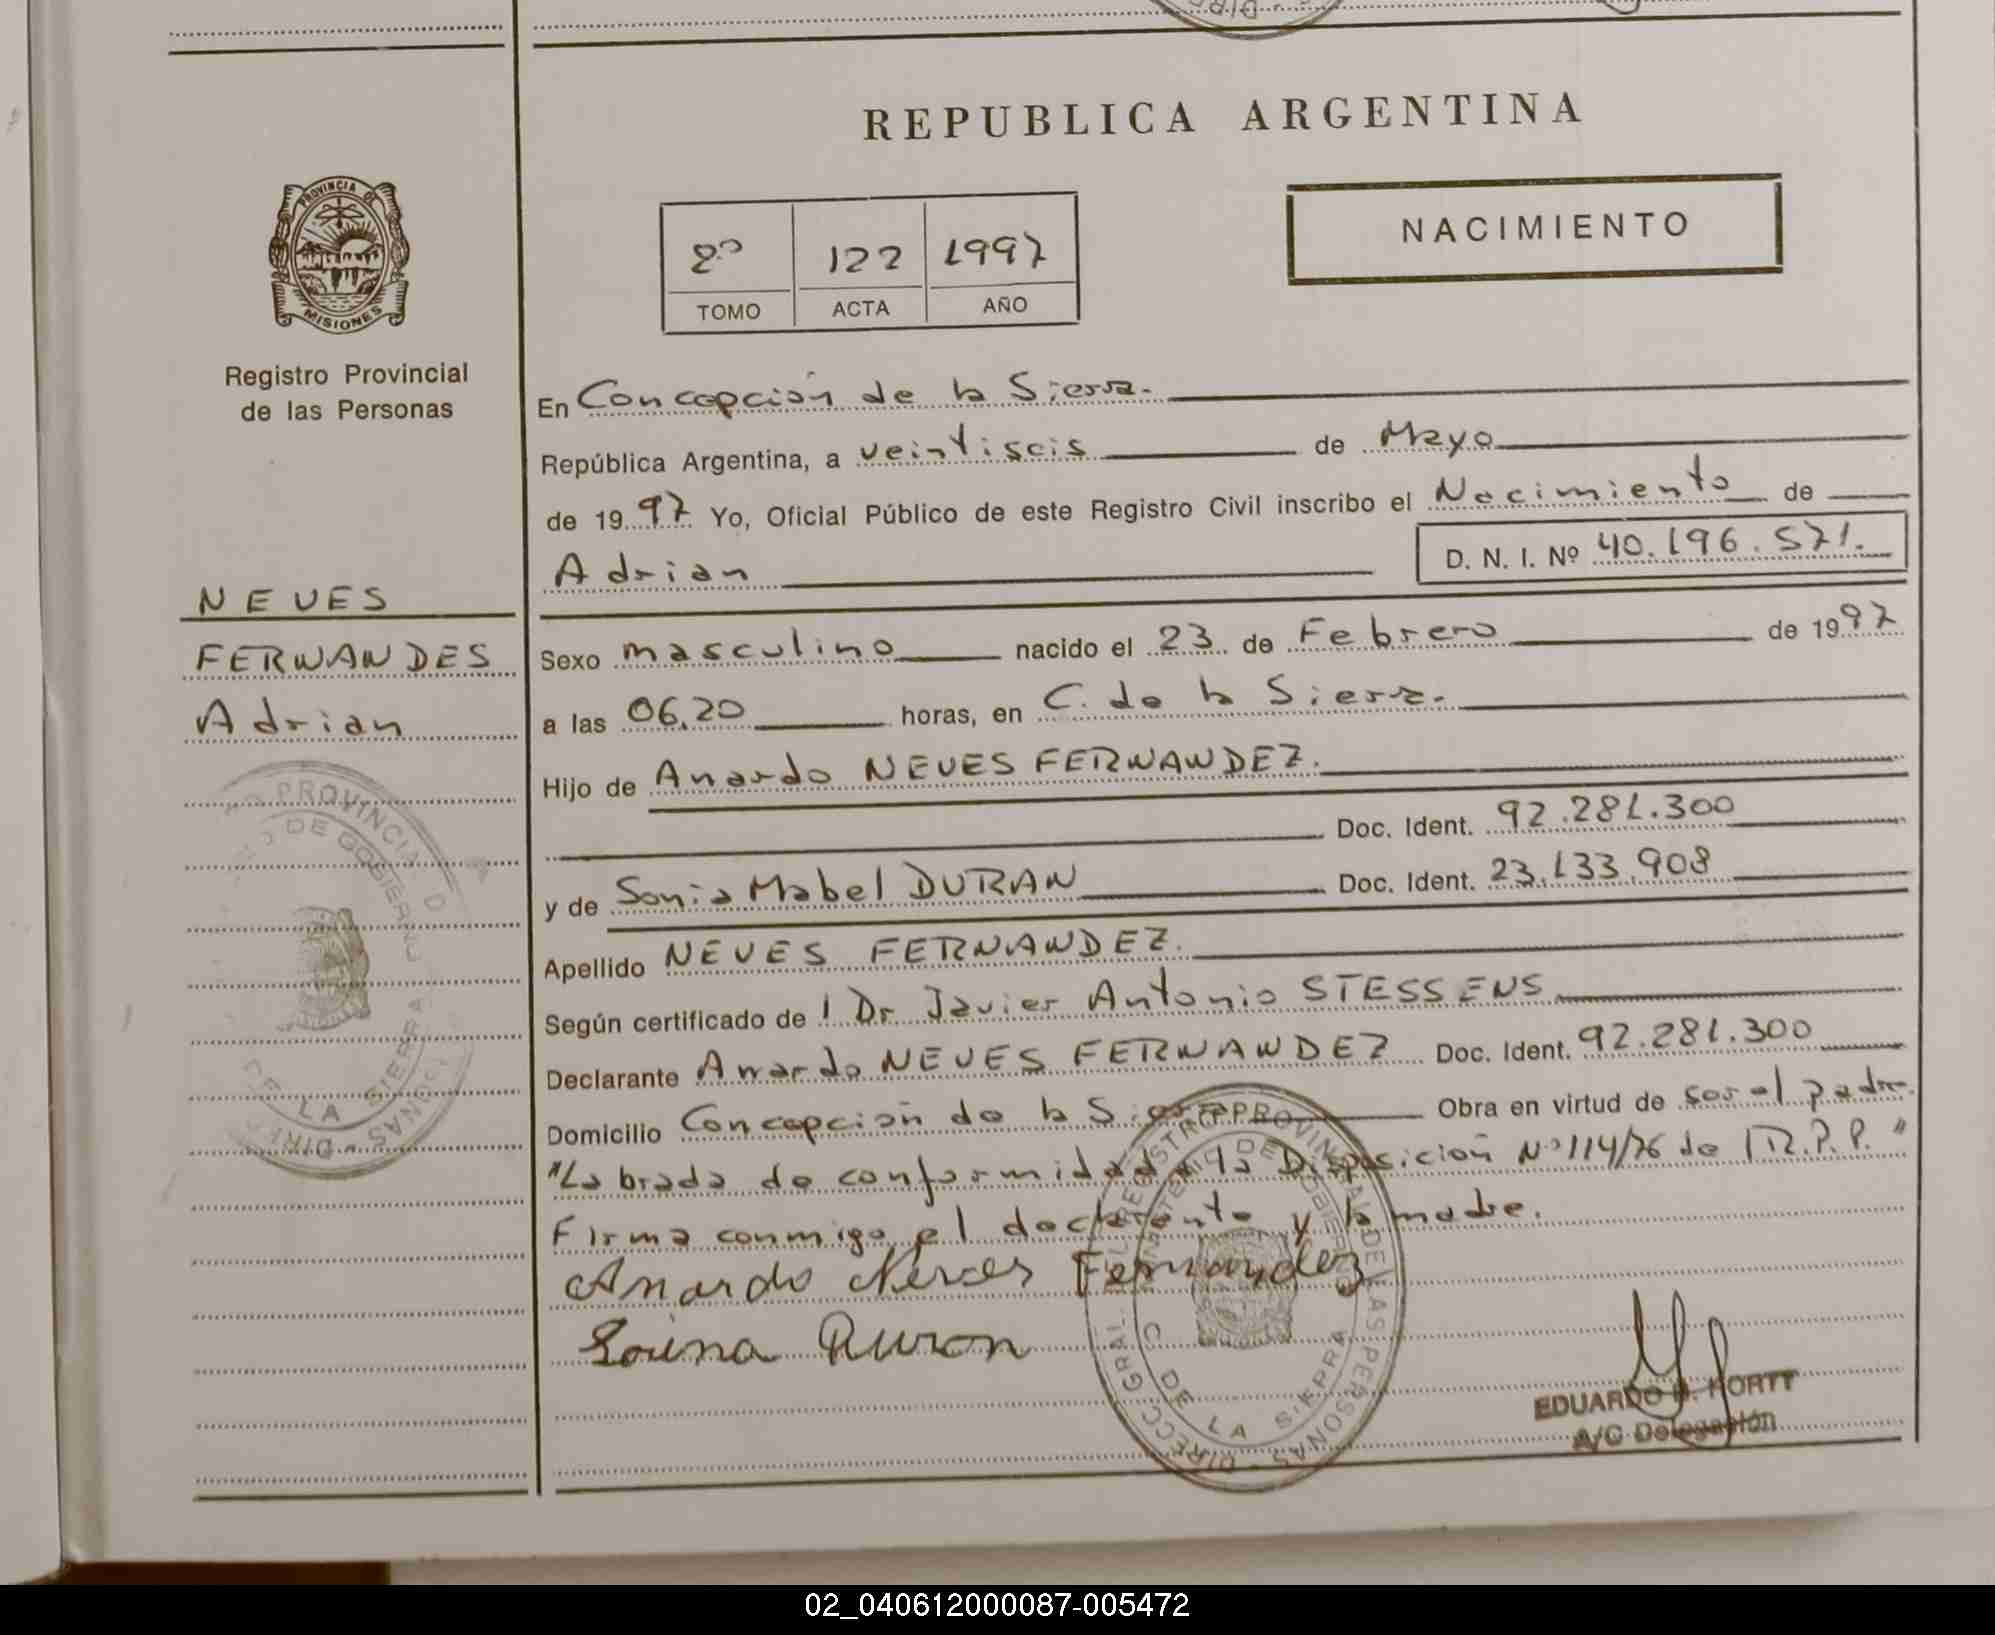 REPUBLICA ARGENTINA
PROVINCIA DE
MISIONES
Registro Provincial
de las Personas
2º 122 1997
TOMO ACTA AÑO
NACIMIENTO
NEVES
FERNANDES
Adrian
En Concepción de la Sierra.
República Argentina, a veintiseis de Mayo
de 1997 Yo, Oficial Público de este Registro Civil inscribo el Nacimiento de
Adrian D. N. I. Nº 40.196.571.
Sexo masculino nacido el 23 de Febrero de 1997
a las 06.20 horas, en C. de la Sierra.
Hijo de Anardo NEVES FERNANDEZ.
Doc. Ident. 92.281.300
y de Sonia Mabel DURAN Doc. Ident. 23.133.908
Apellido NEVES FERNANDEZ.
Según certificado de l Dr Javier Antonio STESSENS
Declarante Anardo NEVES FERNANDEZ Doc. Ident. 92.281.300
Domicilio Concepción de la Sierra Obra en virtud de ser el padre.
"Labrada de conformidad a la Disposición Nº 114/76 de l R.P.P."
Firma conmigo el declarante y la madre.
Anardo Neves Fernandez
Duron
EDUARDO
A/C Delegación
DIRECC GRAL. REGISTRO PROVINCIAL DE LAS PERSONAS
MINISTERIO DE GOBIERNO
C. DE LA SIERRA
PROVINCIAL D
DE GOBIERNO
DE LA SIERRA
02_040612000087-005472